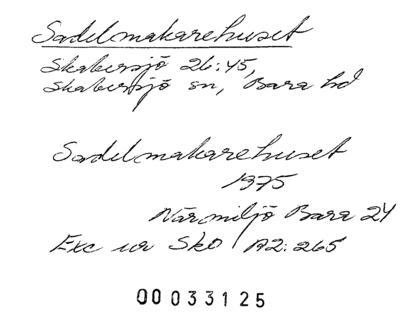 Sadelmakarehuset
Skabersjö 26:45,
Skabersjö sn, Bara hd
Sadelmakarehuset
1975
Närmiljö Bara 24
Exc ur Sko A2:265
00033125